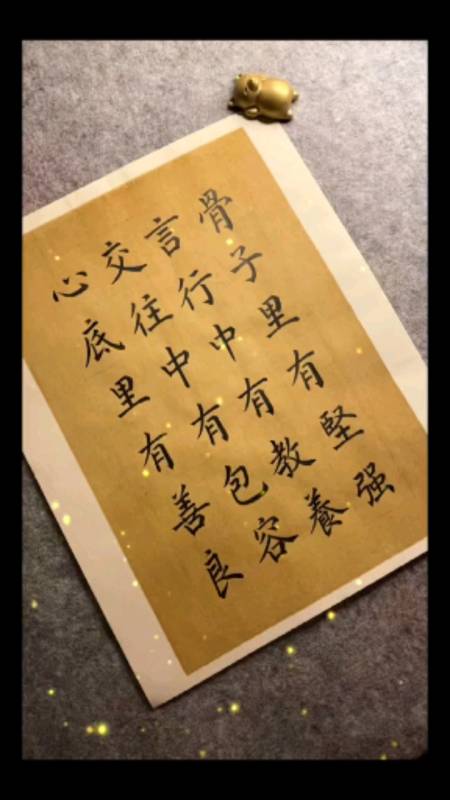 骨子里有堅强
言行中有教養
交往中有包容
心底里有善良